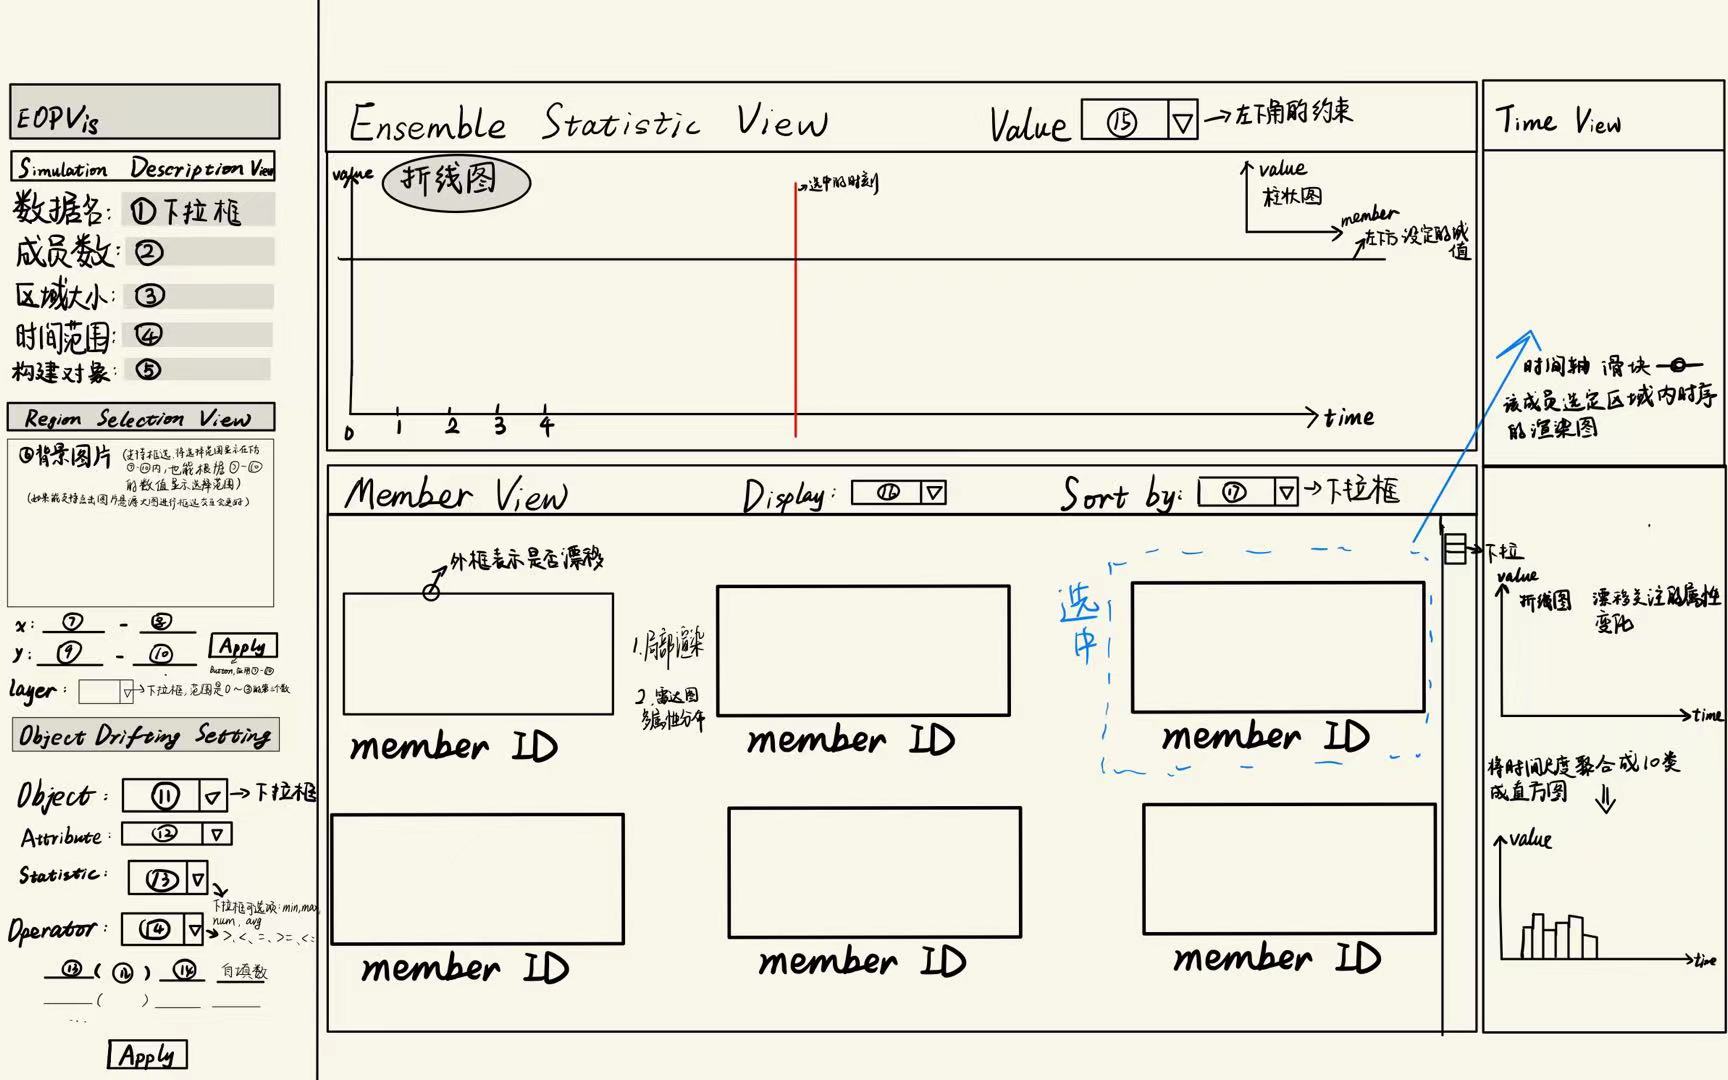 EOPVis
Simulation Description View
数据名: ①下拉框
成员数: ②
区域大小: ③
时间范围: ④
构建对象: ⑤
Region Selection View
⑥背景图片 (支持框选, 将选择范围显示在下方
⑦-⑩内, 也能根据⑦-⑩
的数值显示选择范围)
x: ⑦ - ⑧
y: ⑨ - ⑩ Apply
Button, 应用⑦-⑩
layer: →下拉框, 范围是0~③的第三个数
Object Drifting Setting
Object: ⑪ →下拉框
Attribute: ⑫
Statistic: ⑬
下拉框可选项: min, max,
num, avg
Operator: ⑭ → >、<、=、>=、<=
⑬ ( ⑫ ) ⑭ 自填数
( )
...
Apply
Ensemble Statistic View Value ⑮ →左下角的约束
value 折线图
选中的时刻
value
柱状图
member
左下方设定的阈
值
0 1 2 3 4 time
Member View Display: ⑯ Sort by: ⑰ →下拉框
外框表示是否漂移
1.局部渲染
2.雷达图
多属性分布
选
中
下拉
member ID
member ID
member ID
member ID
member ID
member ID
Time View
时间轴 滑块
该成员选定区域内时序
的渲染图
value
折线图 漂移关注的属性
变化
time
将时间尺度聚合成10类
成直方图
value
time